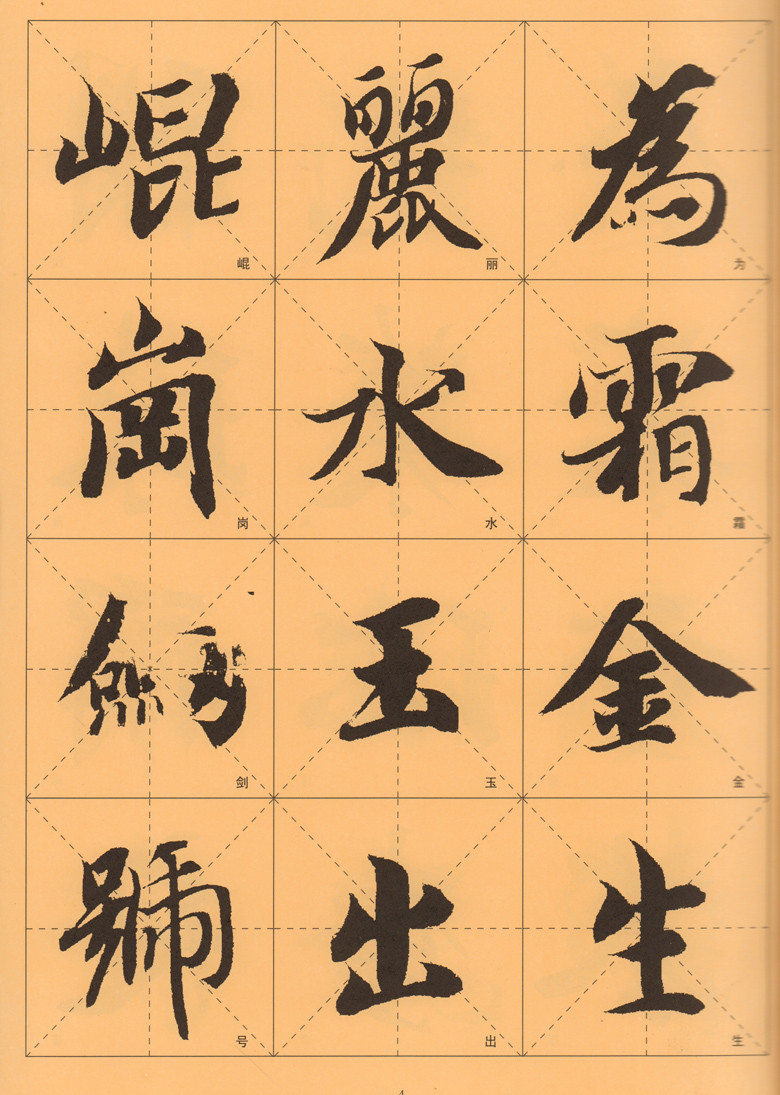 為霜金生
为霜金生
麗水玉出
丽水玉出
崐崗劍號
崐岗剑号